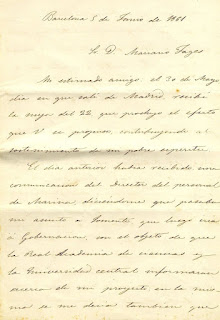 Barcelona 5 de Junio de 1861
S. D. Mariano Fages
Mi estimado amigo: el 30 de Mayo
dia en que salí de Madrid, recibí
la suya del 22 que produjo el efecto
que V. se propuso, contribuyendo al
de mi pobre espíritu.
El dia anterior habia recibido una
comunicacion del Director del personal
de Marina, diciendome que pasaba
mi asunto a Fomento, que luego iria
á Gobernacion, con el objeto de que
la Real Academia de ciencias y
la Universidad central informaran
acerca de mi proyecto; en la mis
ma se me decia tambien que